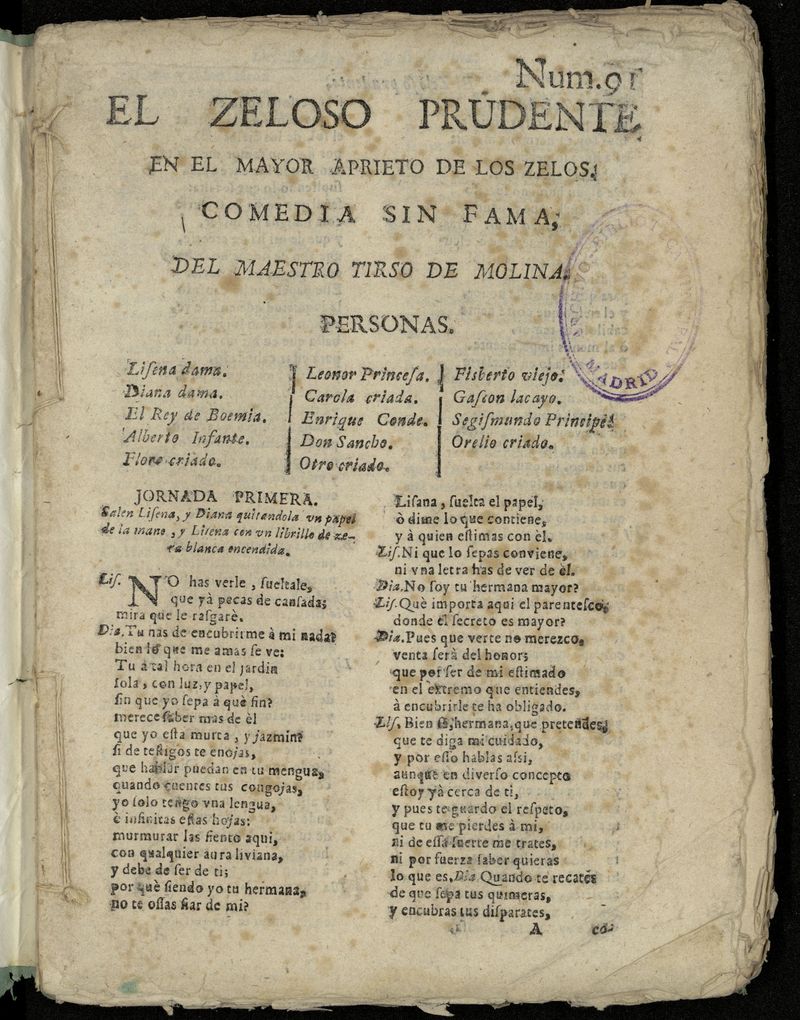 Num.91
EL ZELOSO PRUDENTE
EN EL MAYOR APRIETO DE LOS ZELOS,
COMEDIA SIN FAMA,
DEL MAESTRO TIRSO DE MOLINA.
PERSONAS.
Liſena dama.
Diana dama.
El Rey de Boemia.
Alberto Infante.
Floro criado.
Leonor Princeſa.
Carola criada.
Enrique Conde.
Don Sancho.
Otro criado.
Fisberto viejo.
Gaſcon lacayo.
Segiſmundo Principe.
Orelio criado.
MADRID
JORNADA PRIMERA.
Salen Liſena, y Diana quitandola vn papel
de la mano, y Liſena con vn librillo de ze-
ra blanca encendida.
Liſ. NO has verle, ſueltale,
que yà pecas de canſada;
mira que le raſgarè.
Dia. Tu has de encubrirme à mi nada?
bien lo que me amas ſe ve:
Tu à tal hora en el jardin
ſola, con luz, y papel,
ſin que yo ſepa à què fin?
merece ſaber mas de èl
que yo eſta murta, y jazmin?
ſi de teſtigos te enojas,
que hablar puedan en tu mengua,
quando cuentes tus congojas,
yo ſolo tengo vna lengua,
è infinitas eſtas hojas:
murmurar las ſiento aqui,
con qualquier aura liviana,
y debe de ſer de ti;
por què ſiendo yo tu hermana,
no te oſſas fiar de mi?
Liſana, ſuelta el papel,
ò dime lo que contiene,
y à quien eſtimas con èl.
Liſ. Ni que lo ſepas conviene,
ni vna letra has de ver de èl.
Dia. No ſoy tu hermana mayor?
Liſ. Què importa aqui el parenteſco,
donde el ſecreto es mayor?
Dia. Pues que verte no merezco,
venta ſerà del honor;
que por ſer de mi eſtimado
en el extremo que entiendes,
à encubrirle te ha obligado.
Liſ. Bien sè, hermana, que pretendes,
que te diga mi cuidado,
y por eſſo hablas aſsi,
aunque en diverſo concepto
eſtoy yà cerca de ti,
y pues te guardo el reſpeto,
que tu me pierdes à mi,
ni de eſſa ſuerte me trates,
ni por fuerza ſaber quieras
lo que es. Dia. Quando te recates
de que ſepa tus quimeras,
y encubras tus diſparates,
A